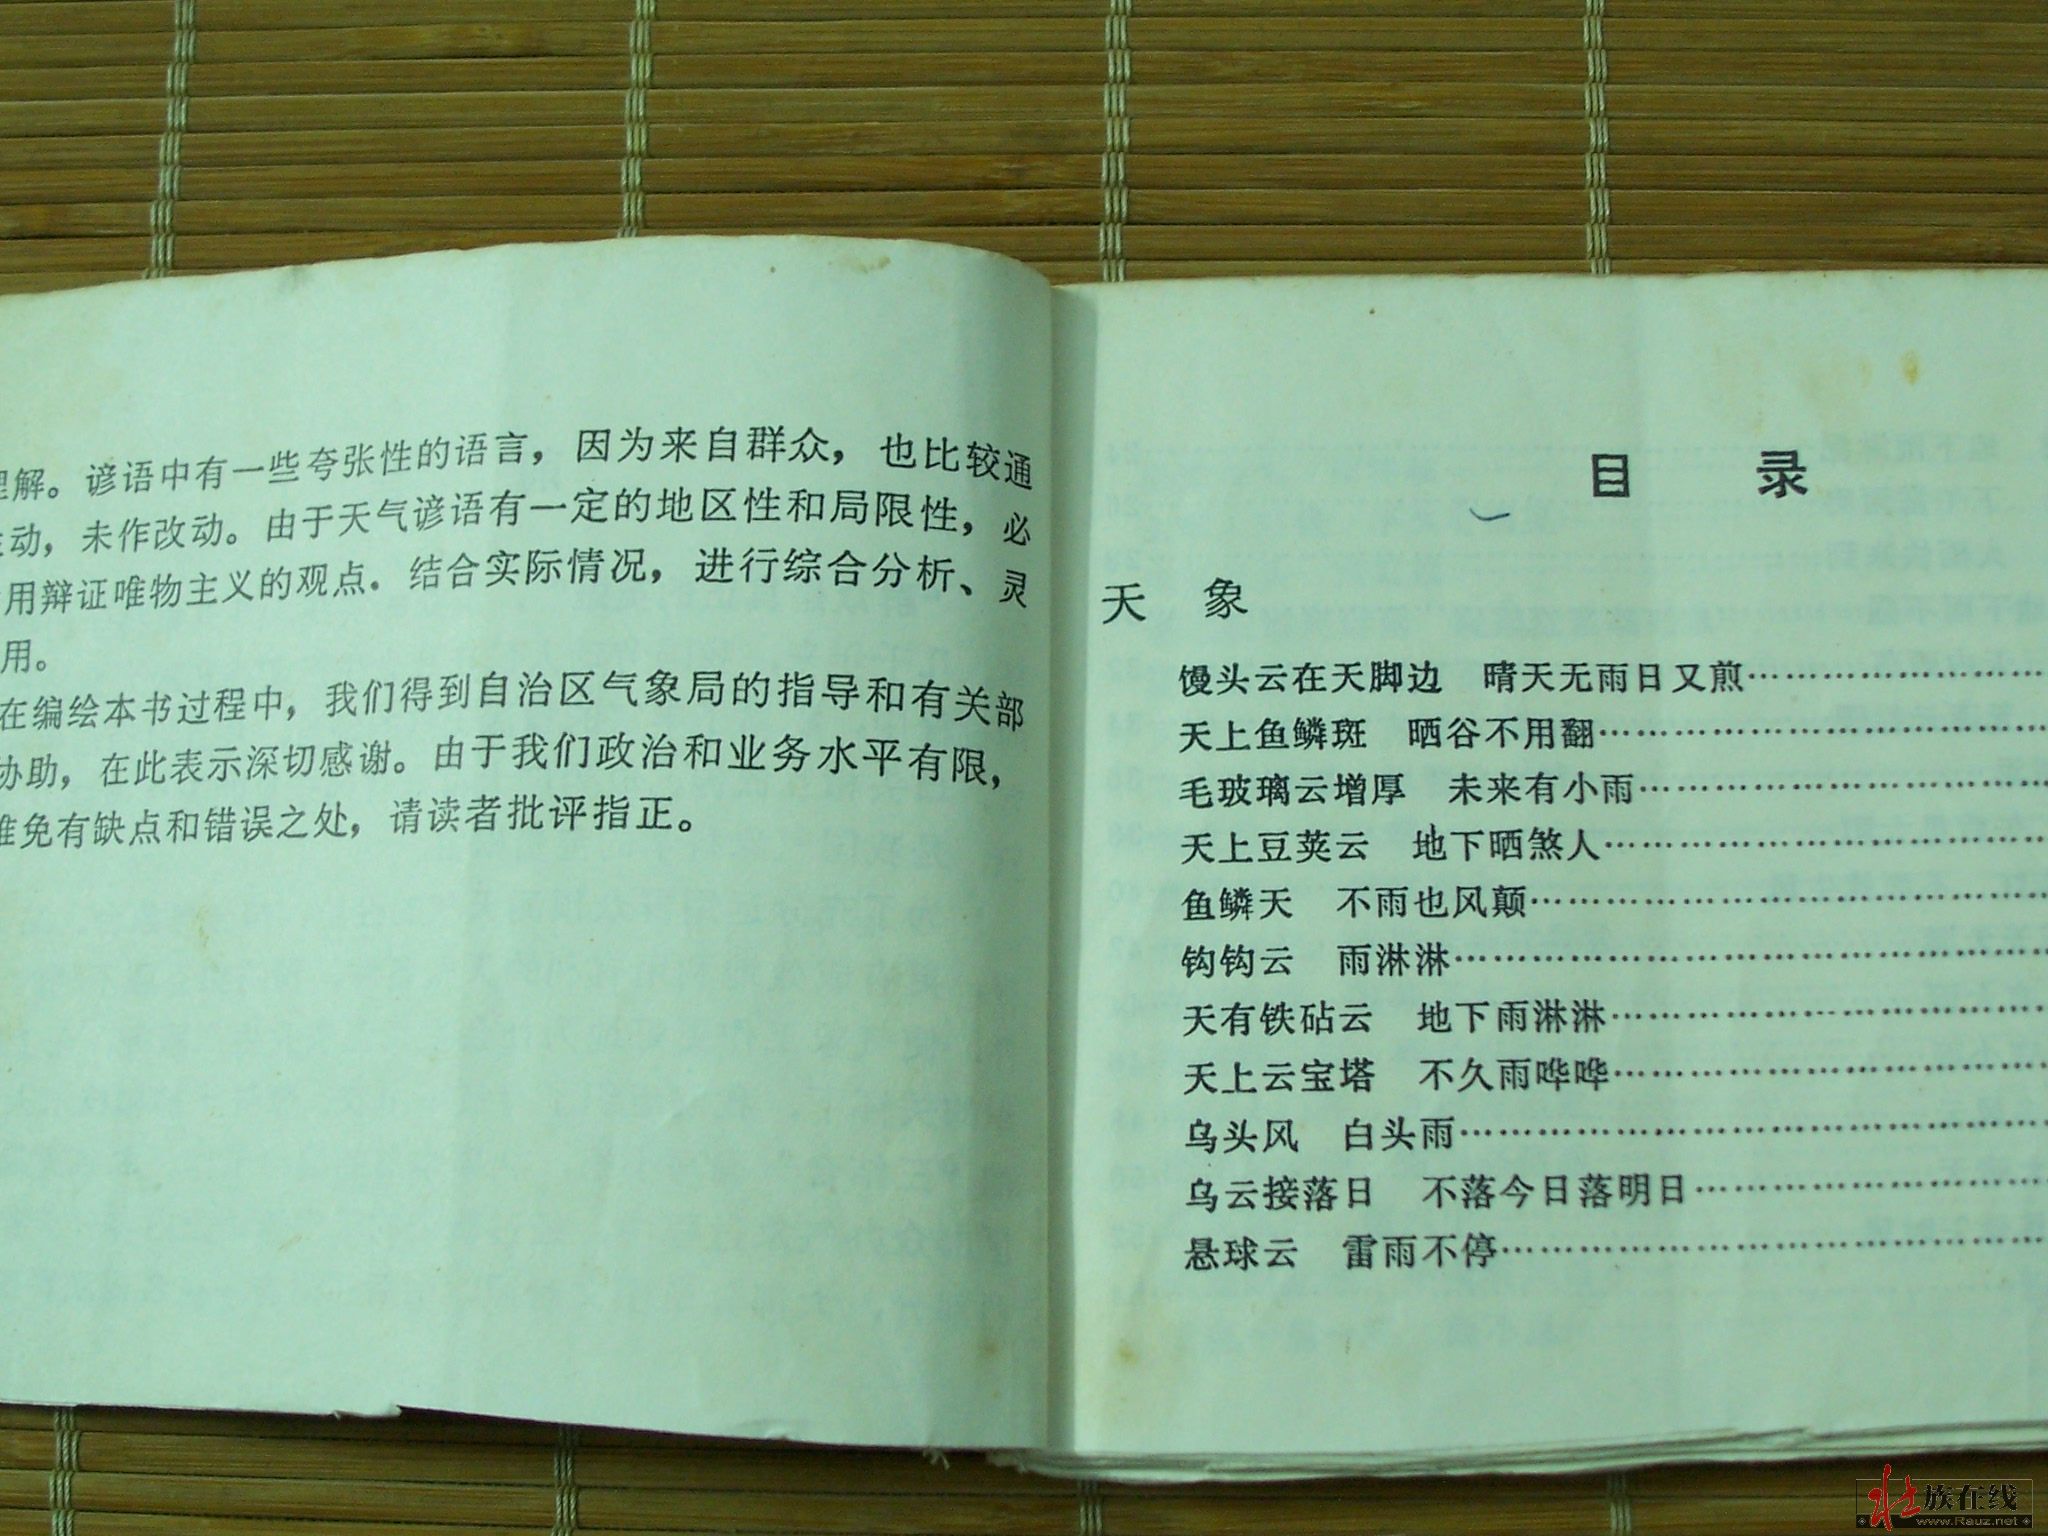 理解。谚语中有一些夸张性的语言，因为来自群众，也比较通
动，未作改动。由于天气谚语有一定的地区性和局限性，必
用辩证唯物主义的观点．结合实际情况，进行综合分析、灵
用。
在编绘本书过程中，我们得到自治区气象局的指导和有关部
协助，在此表示深切感谢。由于我们政治和业务水平有限，
难免有缺点和错误之处，请读者批评指正。
目 录
天 象
馒头云在天脚边 晴天无雨日又煎……………………
天上鱼鳞斑 晒谷不用翻……………………
毛玻璃云增厚 未来有小雨……………………
天上豆荚云 地下晒煞人……………………
鱼鳞天 不雨也风颠……………………
钩钩云 雨淋淋……………………
天有铁砧云 地下雨淋淋……………………
天上云宝塔 不久雨哗哗……………………
乌头风 白头雨……………………
乌云接落日 不落今日落明日……………………
悬球云 雷雨不停……………………
壮族在线
www.Rauz.net